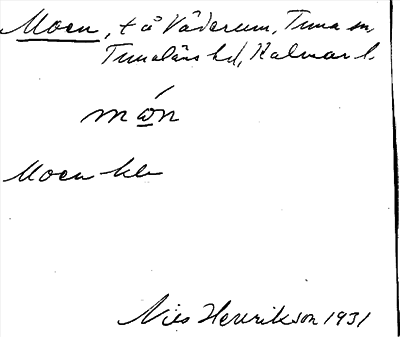 Moen, t å Väderum, Tuna sn,
Tunaläns hd, Kalmar l.
món
Moen kle
Nils Henrikson 1931